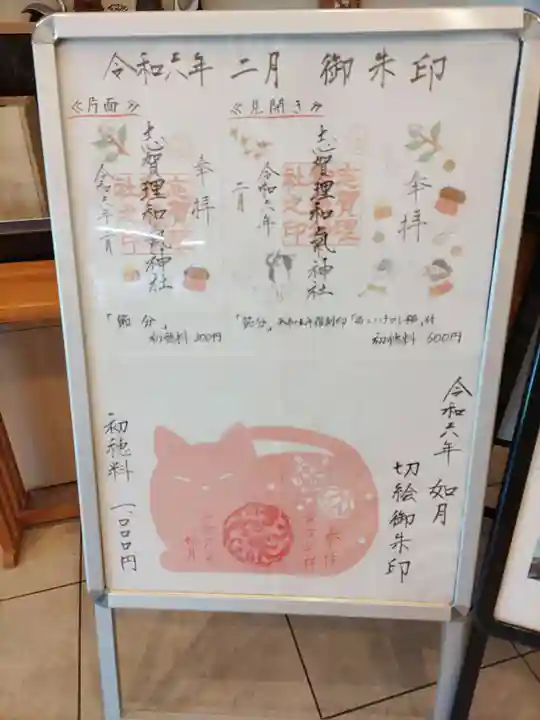 令和六年 二月 御朱印
≪片面≫
≪見開き≫
奉拝
志賀理和氣神社
令和六年 二月
奉拝
志賀理和氣神社
令和六年
二月
志賀理
社之印
「節分」
初穂料 300円
「節分」
初穂料 600円
令和六年 如月
切絵御朱印
初穂料 一、〇〇〇円